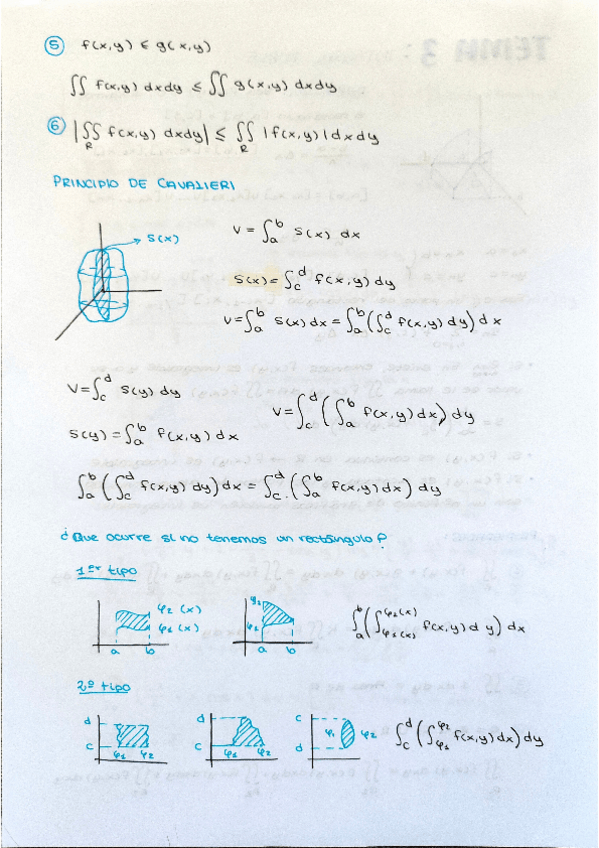 ⑤ f(x,y) ≤ g(x,y)
∬ f(x,y) dxdy ≤ ∬ g(x,y) dxdy
⑥ |∬_R f(x,y) dxdy| ≤ ∬_R |f(x,y)|dxdy
PRINCIPIO DE CAVALIERI
S(x)
V = ∫_a^b S(x) dx
S(x) = ∫_c^d f(x,y) dy
V = ∫_a^b S(x) dx = ∫_a^b (∫_c^d f(x,y) dy) dx
V = ∫_c^d S(y) dy
V = ∫_c^d (∫_a^b f(x,y) dx) dy
S(y) = ∫_a^b f(x,y) dx
∫_a^b (∫_c^d f(x,y) dy) dx = ∫_c^d (∫_a^b f(x,y) dx) dy
¿Que ocurre si no tenemos un rectángulo?
1er tipo
φ2 (x)
φ1 (x)
a b
φ2
a b
∫_a^b (∫_φ1(x)^φ2(x) f(x,y) dy) dx
2º tipo
d
c
φ1 φ2
d
c
φ1 φ2
c
φ1 φ2
d
∫_c^d (∫_φ1^φ2 f(x,y) dx) dy